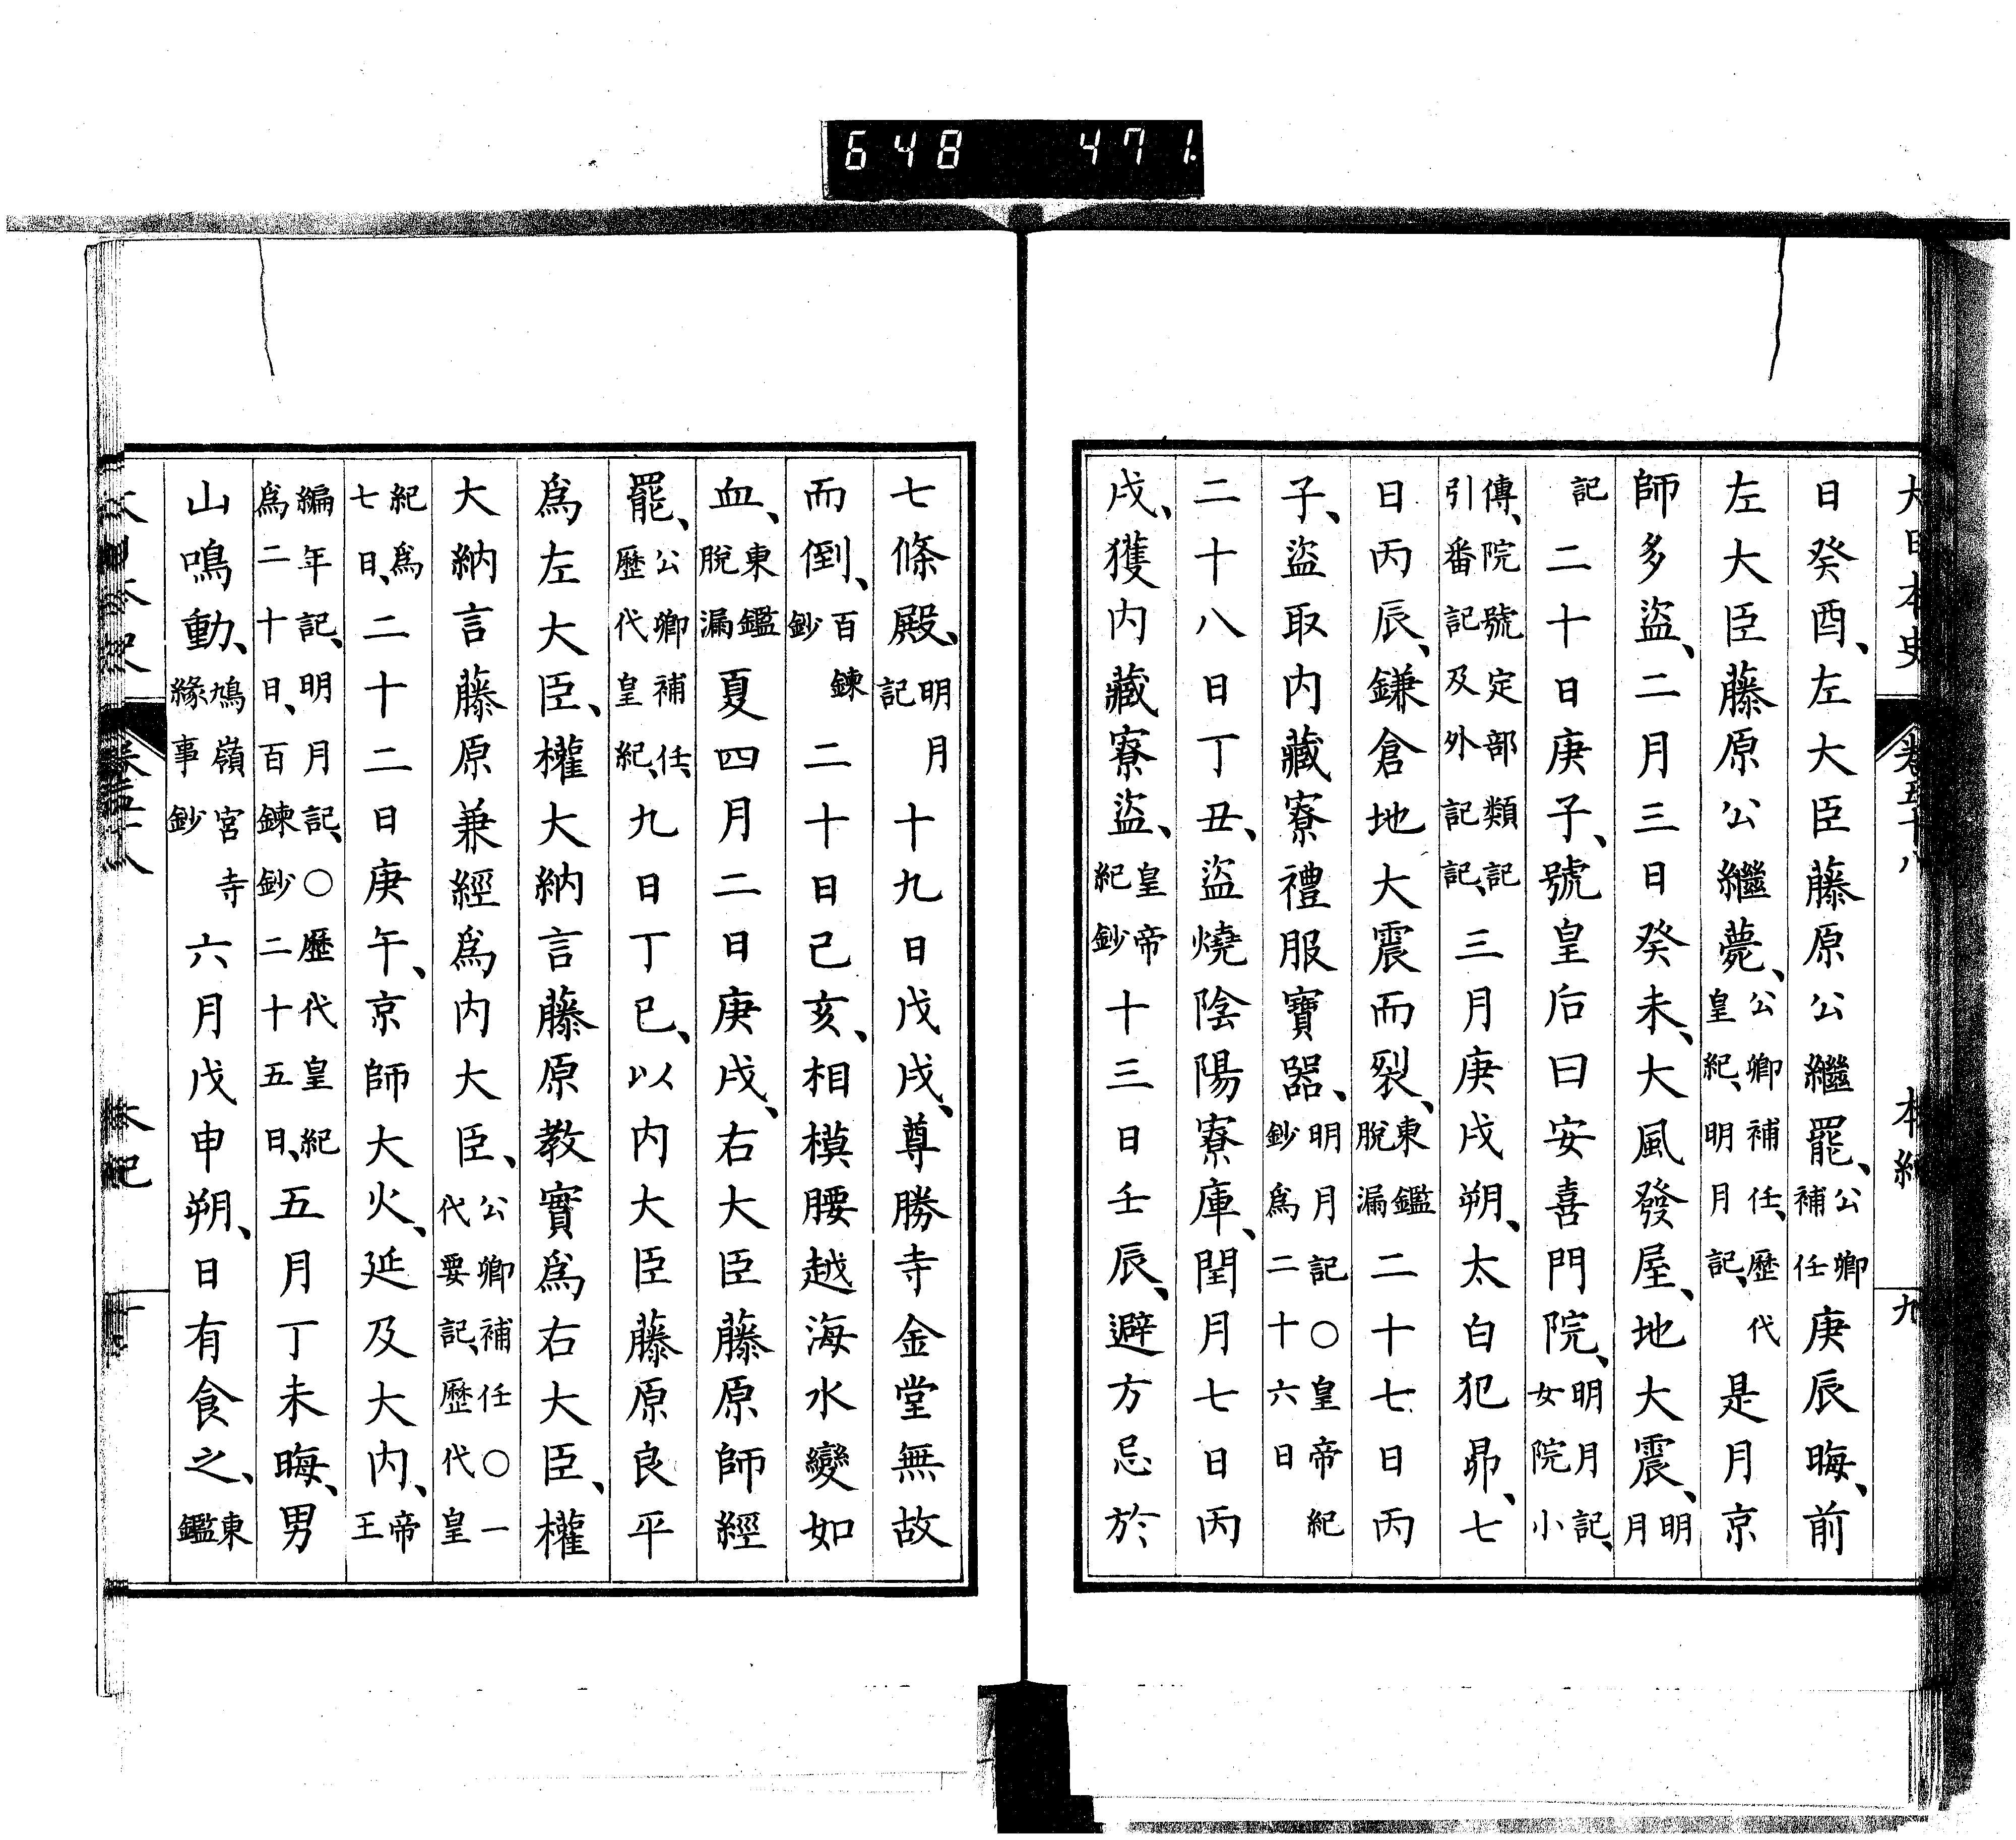 648 471
大日本史 卷五十八 本紀 九
日癸酉、左大臣藤原公繼罷、公卿補任庚辰晦、前
左大臣藤原公繼薨、公卿補任、歷代皇紀、明月記、是月京
師多盜、二月三日癸未、大風發屋、地大震、明月
記二十日庚子、號皇后曰安喜門院、明月記、女院小
傳、院號定部類記引番記及外記記、三月庚戌朔、太白犯昴、七
日丙辰、鎌倉地大震而裂、東鑑脫漏二十七日丙
子、盜取内藏寮禮服寶器、明月記○皇帝紀鈔爲二十六日
二十八日丁丑、盜燒陰陽寮庫、閏月七日丙
戌、獲内藏寮盜、皇帝紀鈔十三日壬辰、避方忌於
七條殿、明月記十九日戊戌、尊勝寺金堂無故
而倒、百鍊鈔二十日己亥、相模腰越海水變如
血、東鑑脫漏夏四月二日庚戌、右大臣藤原師經
罷、公卿補任、歷代皇紀、九日丁巳、以内大臣藤原良平
爲左大臣、權大納言藤原教實爲右大臣、權
大納言藤原兼經爲内大臣、公卿補任○一代要記、歷代皇
紀爲七日、二十二日庚午、京師大火、延及大内、帝王
編年記、明月記、○歷代皇紀爲二十日、百鍊鈔二十五日、五月丁未晦、男
山鳴動、鳩嶺宮寺緣事鈔六月戊申朔、日有食之、東鑑
大日本史 卷五十八 本紀